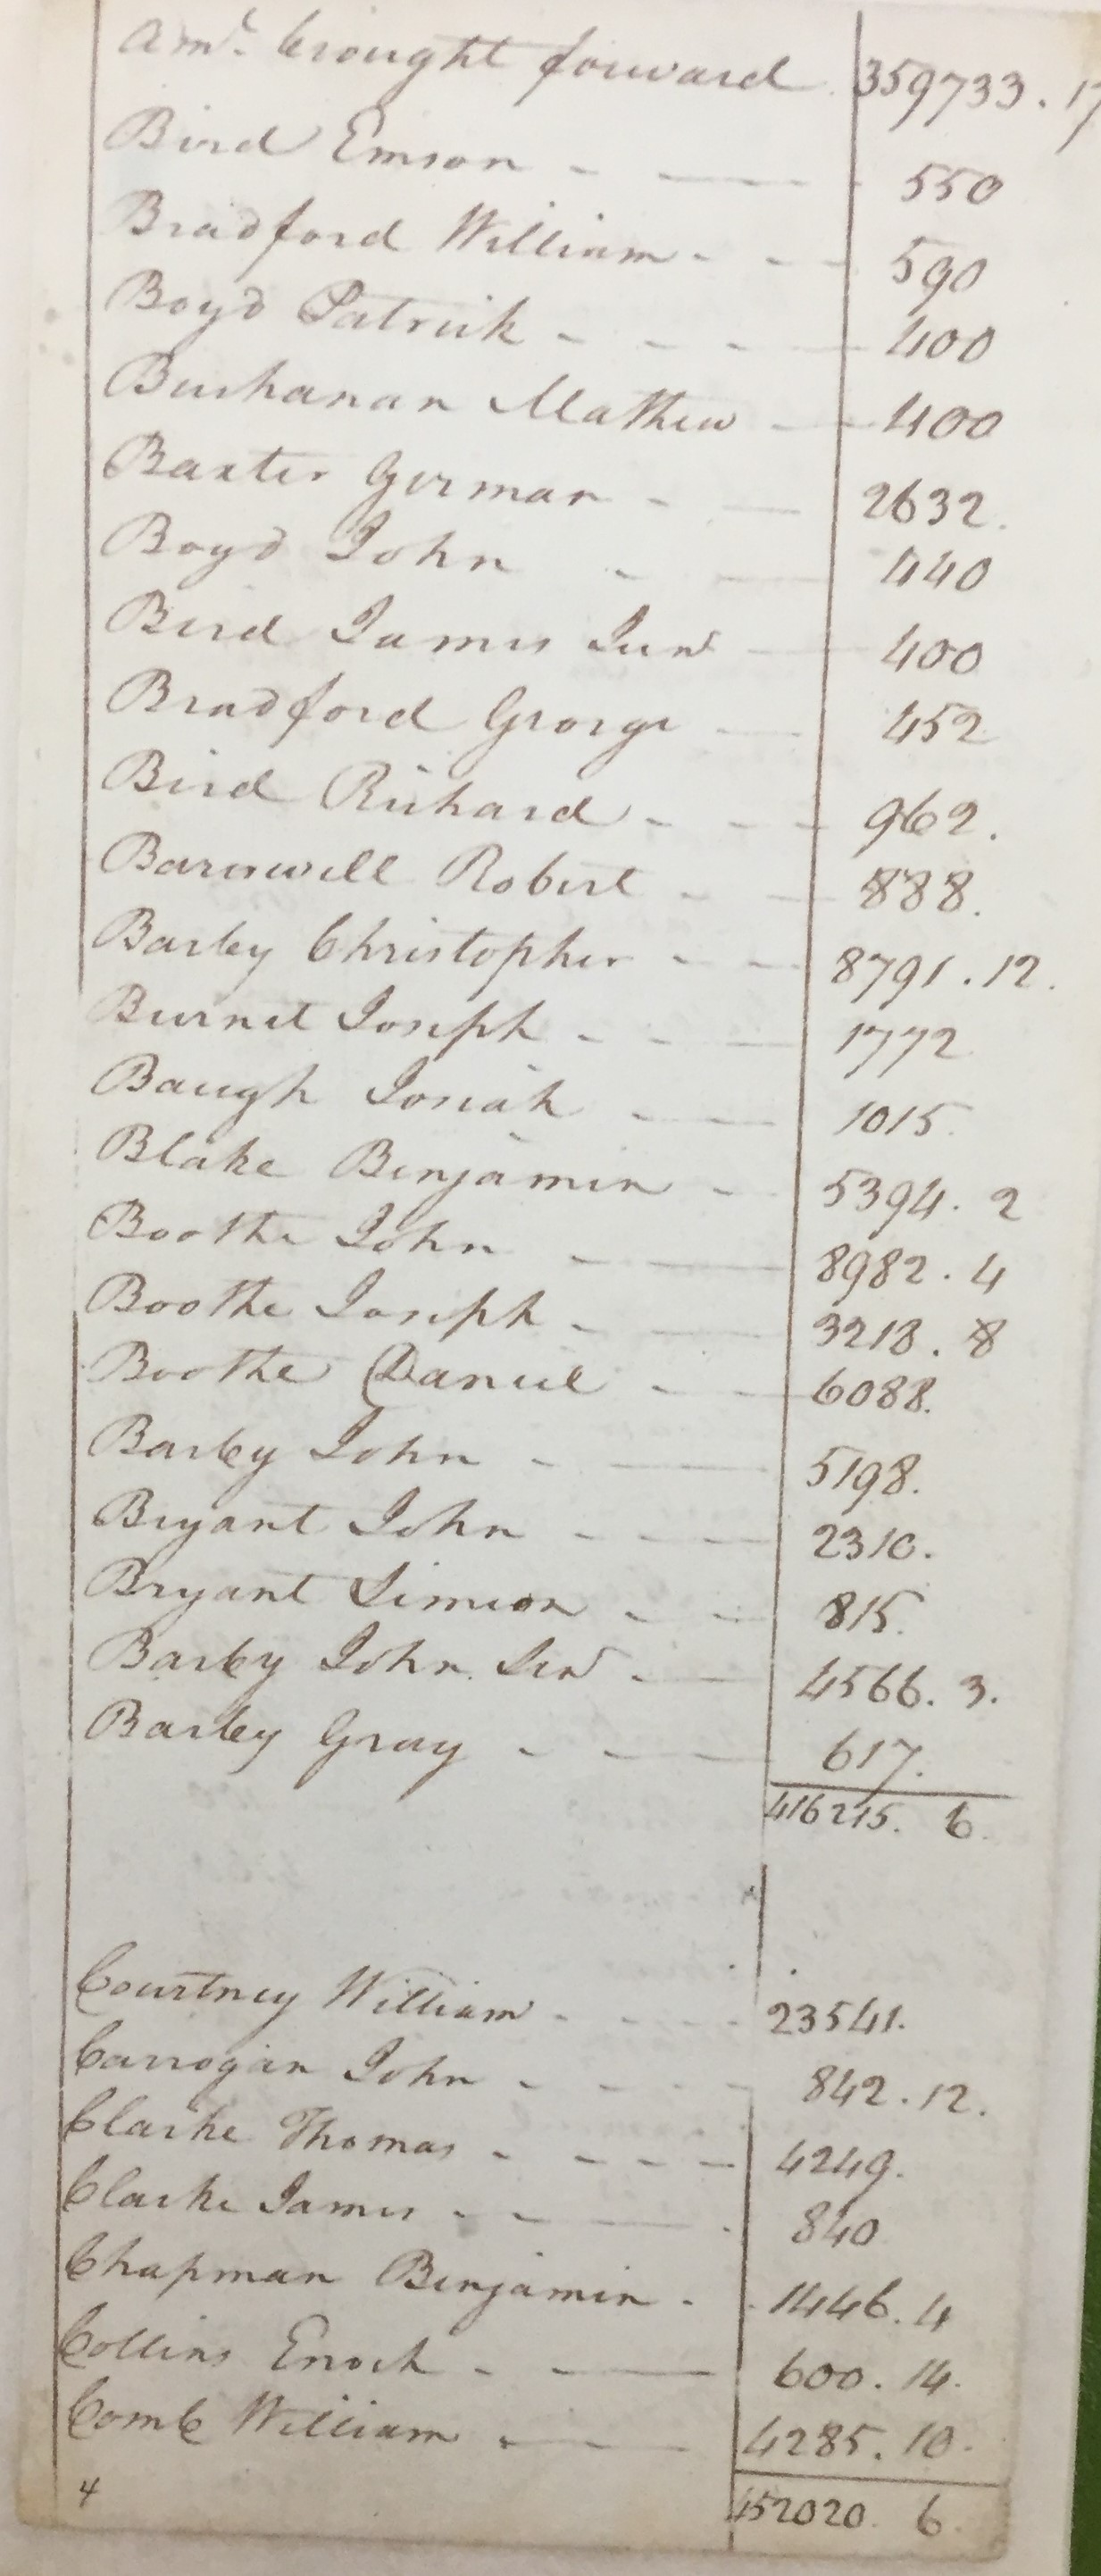 Amt. brought forward 359733.17
Bird Emson 550
Bradford William 590
Boyd Patrick 400
Buchanan Mathew 400
Baxter German 2632.
Boyd John 440
Bird James Junr 400
Bradford George 452
Bird Richard 962.
Barnwell Robert 888.
Barley Christopher 8791.12.
Burnet Joseph 1772
Baugh Josiah 1015.
Blake Benjamin 5394.2
Boothe John 8982.4
Boothe Joseph 3213.8
Boothe Daniel 6088.
Barley John 5198.
Bryant John 2310.
Bryant Simion 815.
Barley John Senr 4566.3.
Barley Gray 617.
416215. 6.
Courtney William 23541.
Carrogan John 842.12.
Clarke Thomas 4249.
Clarke James 840
Chapman Benjamin 1446.4
Collins Enoch 600.14.
Comb William 4285.10.
452020. 6.
4